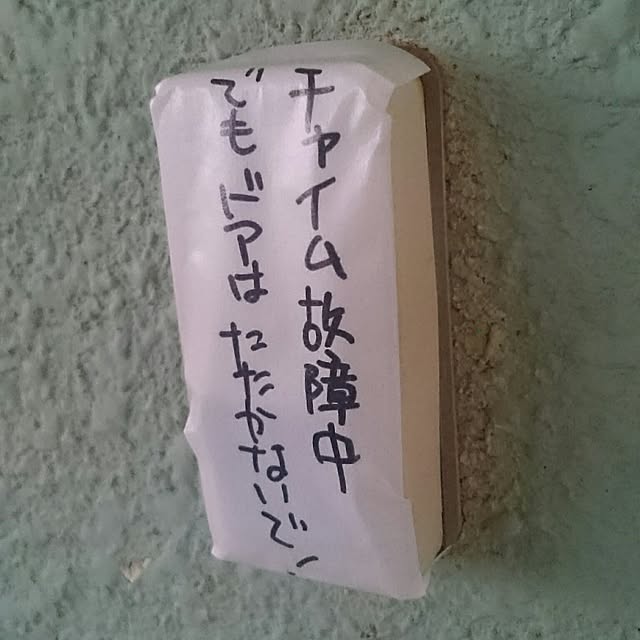 チャイム故障中
でもドアはたたかないで!